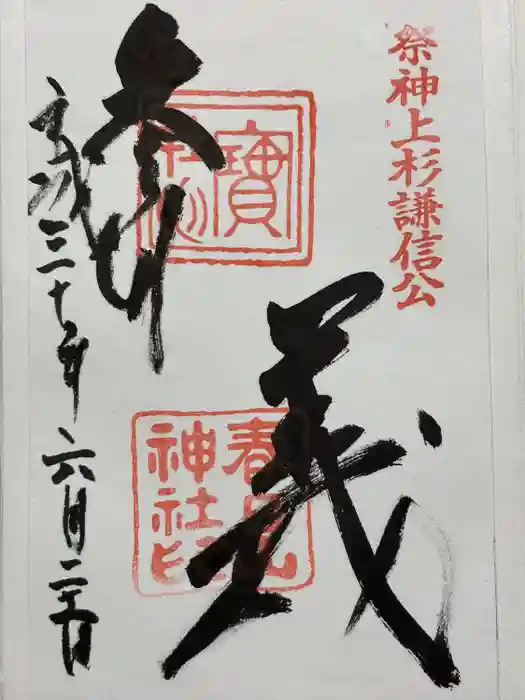 祭神上杉謙信公
義
参拝
平成三十年六月二十日
春日山
神社印